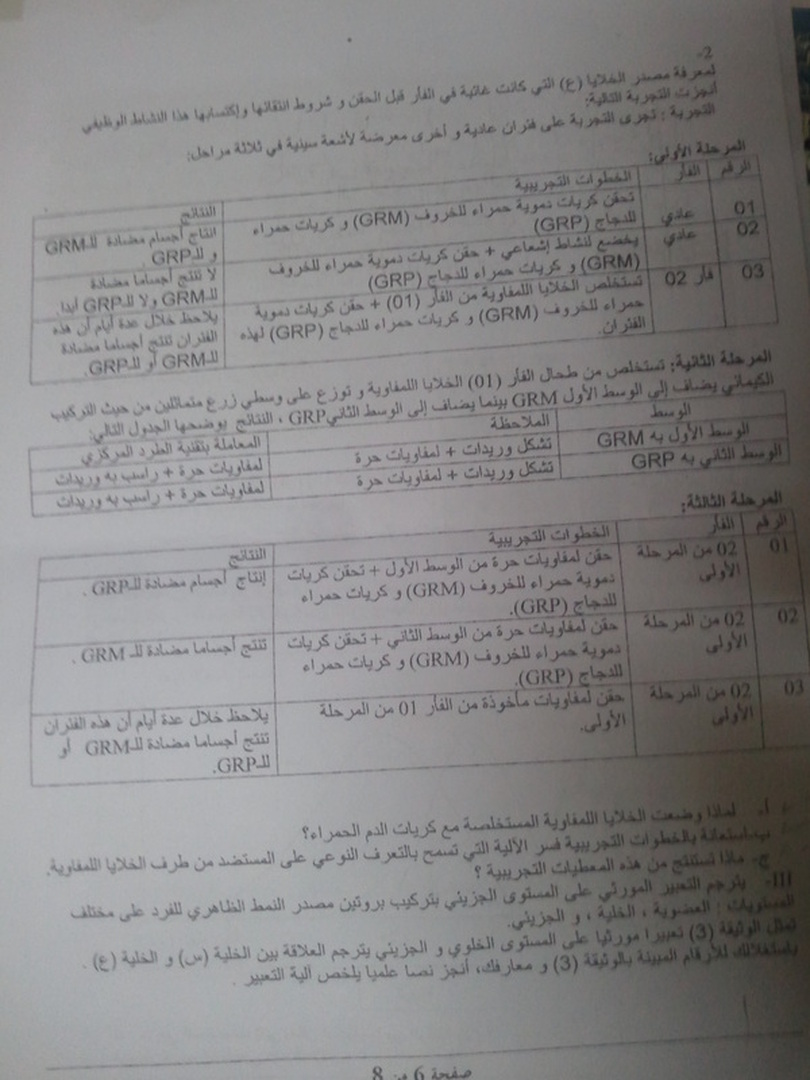 2-
لمعرفة مصدر الخلايا (ع) التي كانت غائبة في الفأر قبل الحقن و شروط انتقائها وإكتسابها هذا النشاط الوظيفي
أنجزت التجربة التالية:
التجربة : تجرى التجربة على فئران عادية و أخرى معرضة لأشعة سينية في ثلاثة مراحل:
المرحلة الأولى:
الرقم الفأر الخطوات التجريبية النتائج
01 عادي تحقن كريات دموية حمراء للخروف (GRM) و كريات حمراء انتاج أجسام مضادة للـGRM
للدجاج (GRP) و للـGRP
02 عادي يخضع لنشاط إشعاعي + حقن كريات دموية حمراء للخروف لا تنتج أجساما مضادة
(GRM) و كريات حمراء للدجاج (GRP) للـGRM ولا للـGRP أبدا.
03 فأر 02 تستخلص الخلايا اللمفاوية من الفأر (01) + حقن كريات دموية يلاحظ خلال عدة أيام أن هذه
حمراء للخروف (GRM) و كريات حمراء للدجاج (GRP) لهذه الفئران تنتج أجساما مضادة
الفئران. للـGRM أو للـGRP.
المرحلة الثانية: تستخلص من طحال الفأر (01) الخلايا اللمفاوية و توزع على وسطي زرع متماثلين من حيث التركيب
الكيمائي يضاف إلى الوسط الأول GRM بينما يضاف إلى الوسط الثانيGRP ، النتائج يوضحها الجدول التالي:
الوسط الملاحظة المعاملة بتقنية الطرد المركزي
الوسط الأول به GRM تشكل وريدات + لمفاويات حرة لمفاويات حرة + راسب به وريدات
الوسط الثاني به GRP تشكل وريدات + لمفاويات حرة لمفاويات حرة + راسب به وريدات
المرحلة الثالثة:
الرقم الفأر الخطوات التجريبية النتائج
01 02 من المرحلة حقن لمفاويات حرة من الوسط الأول + تحقن كريات إنتاج أجسام مضادة للـGRP .
الأولى دموية حمراء للخروف (GRM) و كريات حمراء
للدجاج (GRP).
02 02 من المرحلة حقن لمفاويات حرة من الوسط الثاني + تحقن كريات تنتج أجساما مضادة للـ GRM .
الأولى دموية حمراء للخروف (GRM) و كريات حمراء
للدجاج (GRP).
03 02 من المرحلة حقن لمفاويات مأخوذة من الفأر 01 من المرحلة يلاحظ خلال عدة أيام أن هذه الفئران
الأولى الأولى. تنتج أجساما مضادة للـGRM أو
للـGRP.
أ- لماذا وضعت الخلايا اللمفاوية المستخلصة مع كريات الدم الحمراء؟
ب-استعانة بالخطوات التجريبية فسر الآلية التي تسمح بالتعرف النوعي على المستضد من طرف الخلايا اللمفاوية.
ج- ماذا تستنتج من هذه المعطيات التجريبية ؟
III- يترجم التعبير المورثي على المستوى الجزيئي بتركيب بروتين مصدر النمط الظاهري للفرد على مختلف
المستويات : العضوية ، الخلية ، و الجزيئي.
تمثل الوثيقة (3) تعبيرا مورثيا على المستوى الخلوي و الجزيئي يترجم العلاقة بين الخلية (س) و الخلية (ع) .
باستغلالك للأرقام المبينة بالوثيقة (3) و معارفك، أنجز نصا علميا يلخص آلية التعبير .
صفحة 6 من 8